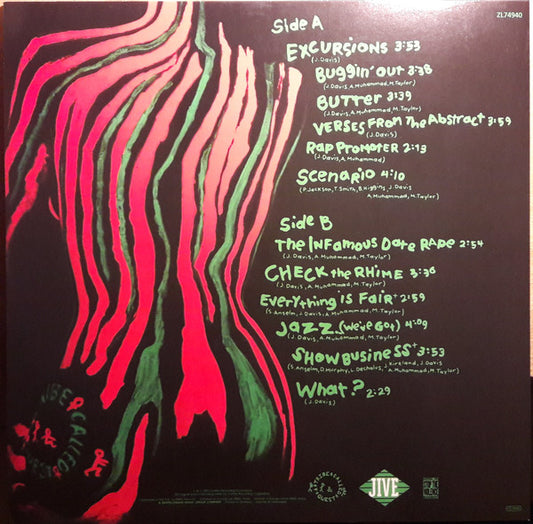 ZL74940
Side A
EXCURSIONS 3:53
(J. Davis)
Buggin' Out 3:38
(J. Davis, A. Muhammad, M. Taylor)
BUTTER 3:39
(J. Davis, A. Muhammad, M. Taylor)
VERSES FROM The Abstract 3:59
(J. Davis)
Rap Promoter 2:13
(J. Davis, A. Muhammad)
Scenario 4:10
(P. Jackson, T. Smith, B. Higgins, J. Davis
A. Muhammad, M. Taylor)
Side B
The INFamous Date Rape 2:54
(J. Davis, A. Muhammad, M. Taylor)
CHECK the RHIME 3:36
(J. Davis, A. Muhammad, M. Taylor)
Everything is Fair+ 2:59
(S. Anselm, J. Davis, A. Muhammad, M. Taylor)
Jazz (we've Got) 4:09
(J. Davis, A. Muhammad, M. Taylor)
SHOW BUSINESS+ 3:53
(S. Anselm, D. Murphy, L. Dechalus, J. Kirkland, J. Davis
A. Muhammad, M. Taylor)
What? 2:29
(J. Davis)
CALLED
JIVE